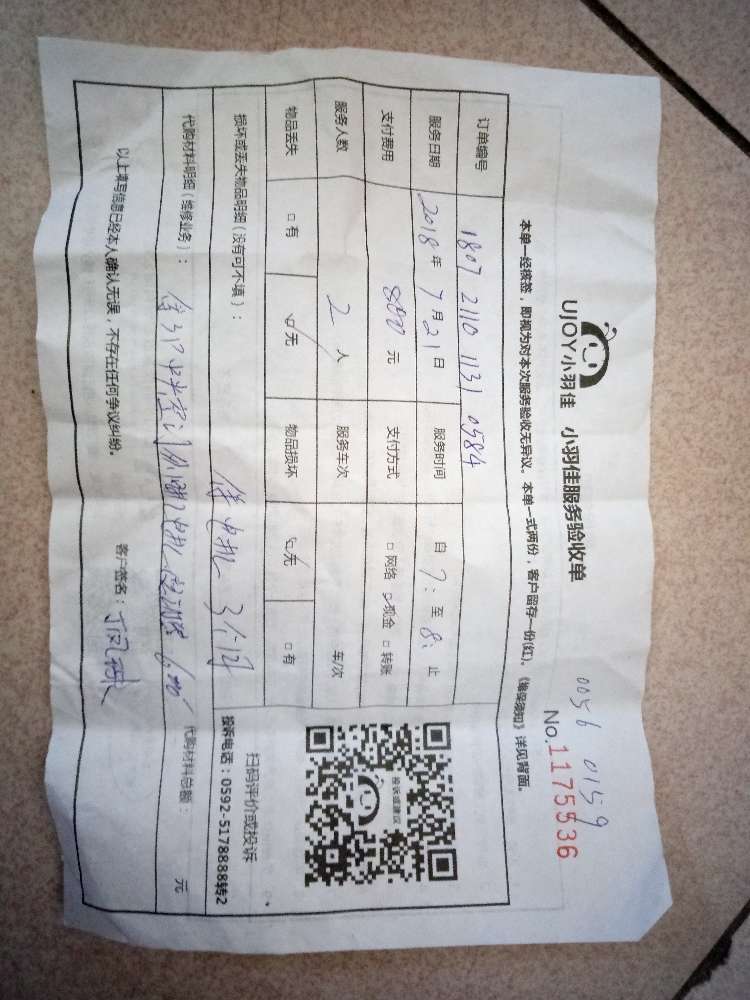 0056 0159
UJOY小羽佳 小羽佳服务验收单
No.1175536
本单一经核签，即视为对本次服务验收无异议。本单一式两份，客户留存一份(红)。《维保须知》详见背面。
订单编号 1807 2110 1131 0584
服务日期 2018 年 7 月 21 日 服务时间 自 7: 至 8: 止
支付费用 元 支付方式 □网络 ☑现金 □转账
服务人数 2 人 服务车次 车次
物品丢失 □有 ☑无 物品损坏 ☑无 □有
投诉或建议
损坏或丢失物品明细（没有可不填）：
扫码评价或投诉
投诉电话：0592-5178888转2
代购材料明细（维修业务）：
代购材料总额： 元
以上填写信息已经本人确认无误，不存在任何争议纠纷。 客户签名：